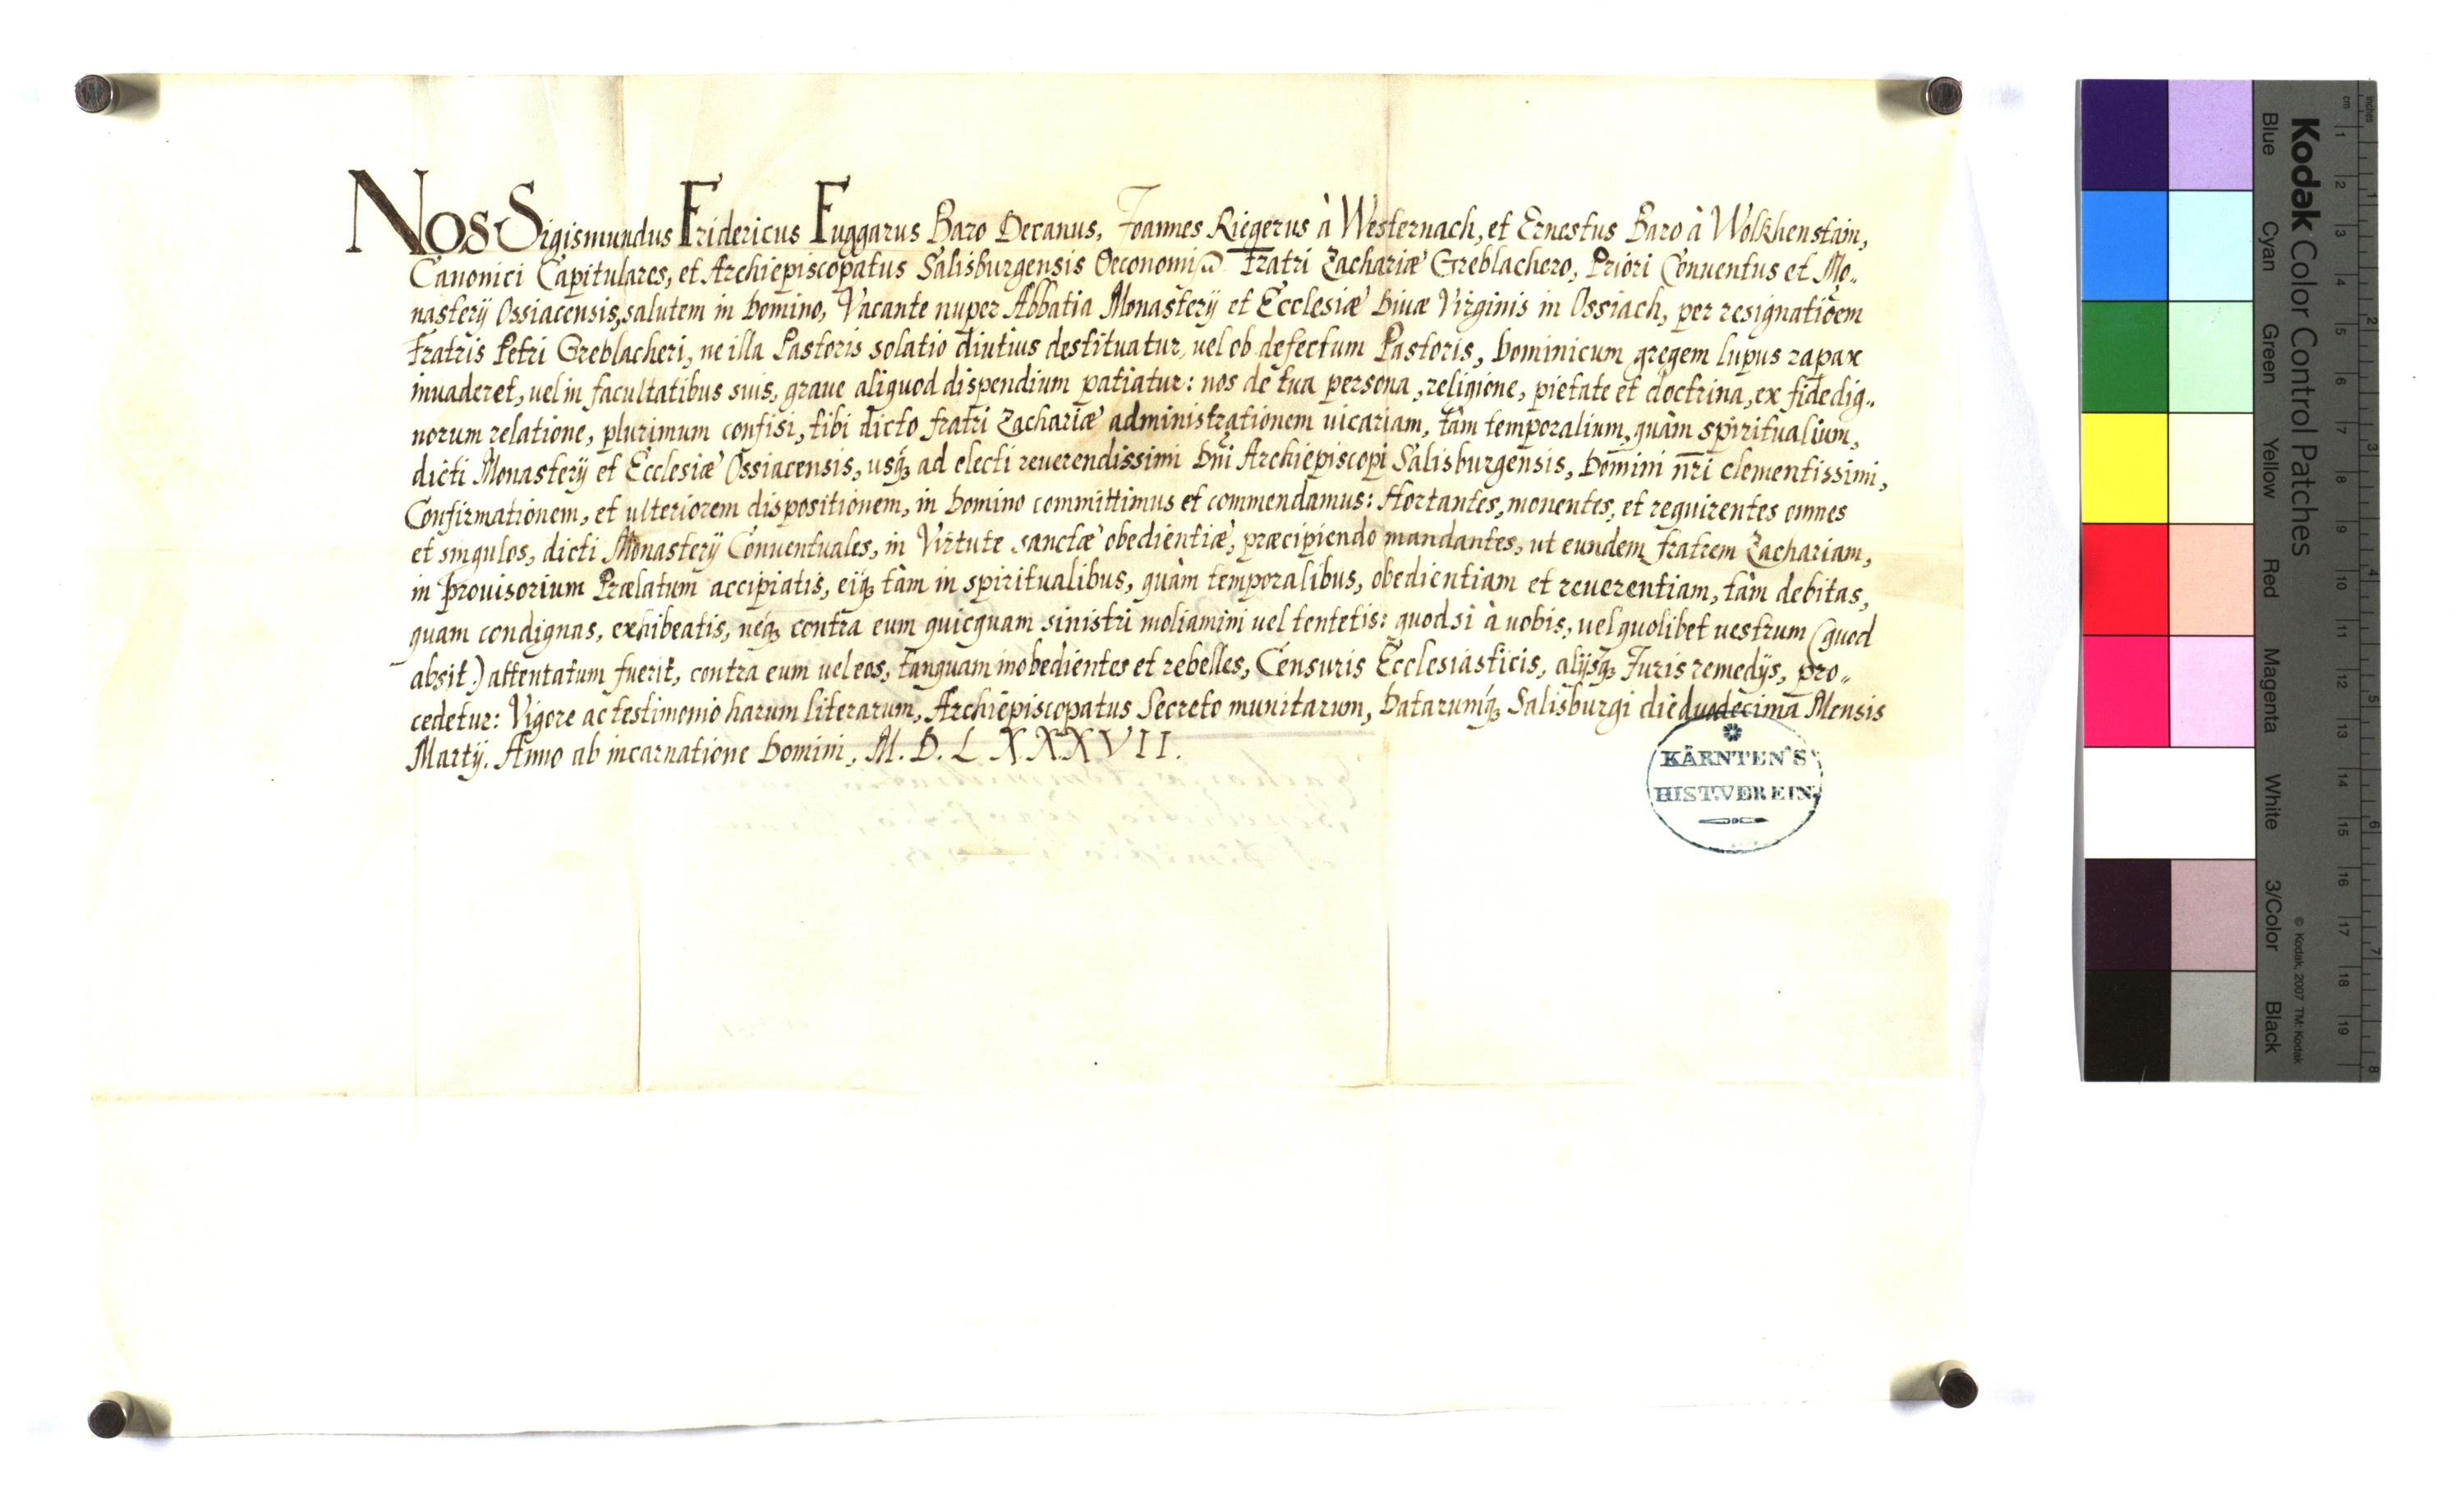 Nos Sigismundus Fridericus Fuggarus Baro Decanus, Joannes Riegerus à Westernach, et Ernestus Baro à Wolkhenstain,
Canonici Capitulares, et Archiepiscopatus Salisburgensis Oeconomi Fratri Zachariæ Greblachero, Priori Conuentus et Mo„
nasterij Ossiacensis, salutem in Domino, Vacante nuper Abbatia Monasterij et Ecclesiæ Diuæ Virginis in Ossiach, per resignatiōem
Fratris Petri Greblacheri, ne illa Pastoris solatio diutius destituatur, uel ob defectum Pastoris, Dominicum gregem lupus rapax
inuaderet, uel in facultatibus suis, graue aliquod dispendium patiatur: nos de tua persona, religione, pietate et doctrina, ex fidedig„
norum relatione, plurimum confisi, tibi dicto fratri Zachariæ administrationem uicariam, tàm temporalium, quàm spiritualium,
dicti Monasterij et Ecclesiæ Ossiacensis, usq́; ad electi reuerendissimi Dn̄i Archiepiscopi Salisburgensis, Domini nr̄i clementissimi,
Confirmationem, et ulteriorem dispositionem, in Domino committimus et commendamus: Hortantes, monentes, et requirentes omnes
et singulos, dicti Monasterij Conuentuales, in Virtute sanctæ obedientiæ, præcipiendo mandantes, ut eundem fratrem Zachariam,
in prouisorium Prælatum accipiatis, eiq́; tàm in spiritualibus, quàm temporalibus, obedientiam et reuerentiam, tàm debitas,
quam condignas, exhibeatis, neq́; contra eum quicquam sinistri moliamini uel tentetis: quod si à uobis, uel quolibet uestrum (quod
absit.) attentatum fuerit, contra eum uel eos, tanquam inobedientes et rebelles, Censuris Ecclesiasticis, alijsq́; Juris remedijs, pro„
cedetur: Vigore ac testimonio harum literarum, Archiepiscopatus Secreto munitarum, Datarumq́; Salisburgi die duodecima Mensis
Martij. Anno ab incarnatione Domini, M. D. L X X X V I I.
KÄRNTEN'S
HIST.VEREIN
Kodak Color Control Patches
© Kodak, 2007 TM: Kodak
Blue Cyan Green Yellow Red Magenta White 3/Color Black
cm 1 2 3 4 5 6 7 8 9 10 11 12 13 14 15 16 17 18 19
inches 1 2 3 4 5 6 7 8